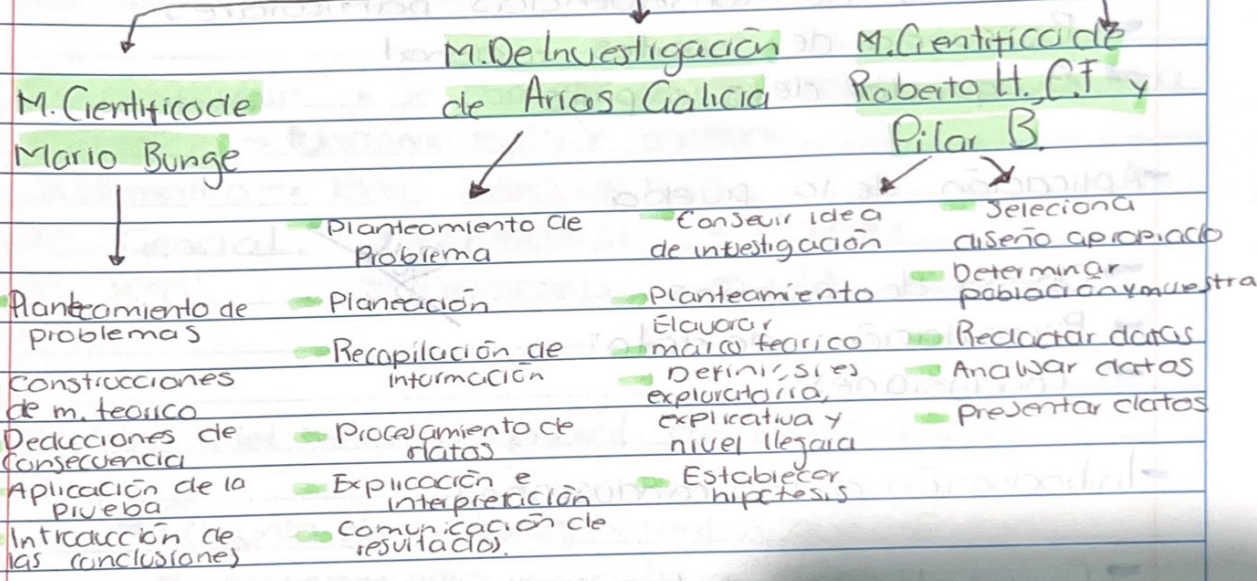 M. Cientifico de
Mario Bunge
Planteamiento de
problemas
Construcciones
de m. teorico
Deducciones de
Consecuencia
Aplicación de la
Prueba
Introducción de
las conclusiones
M. De Investigación
de Arias Galicia
Planteamiento de
Problema
Planeación
Recopilación de
información
Procesamiento de
datos
Explicación e
interpretición
Comunicación de
resultados.
M. Cientifico de
Roberto H. C.F y
Pilar B.
Conseuir idea
de intestigación
Planteamiento
Elavorar
marco teorico
Definir si es
exploratorria,
explicativa y
nivel llegara
Establecer
hipotesis
Seleciona
diseño apropiado
Determinar
población y muestra
Redactar datos
Analisar datos
Presentar datos